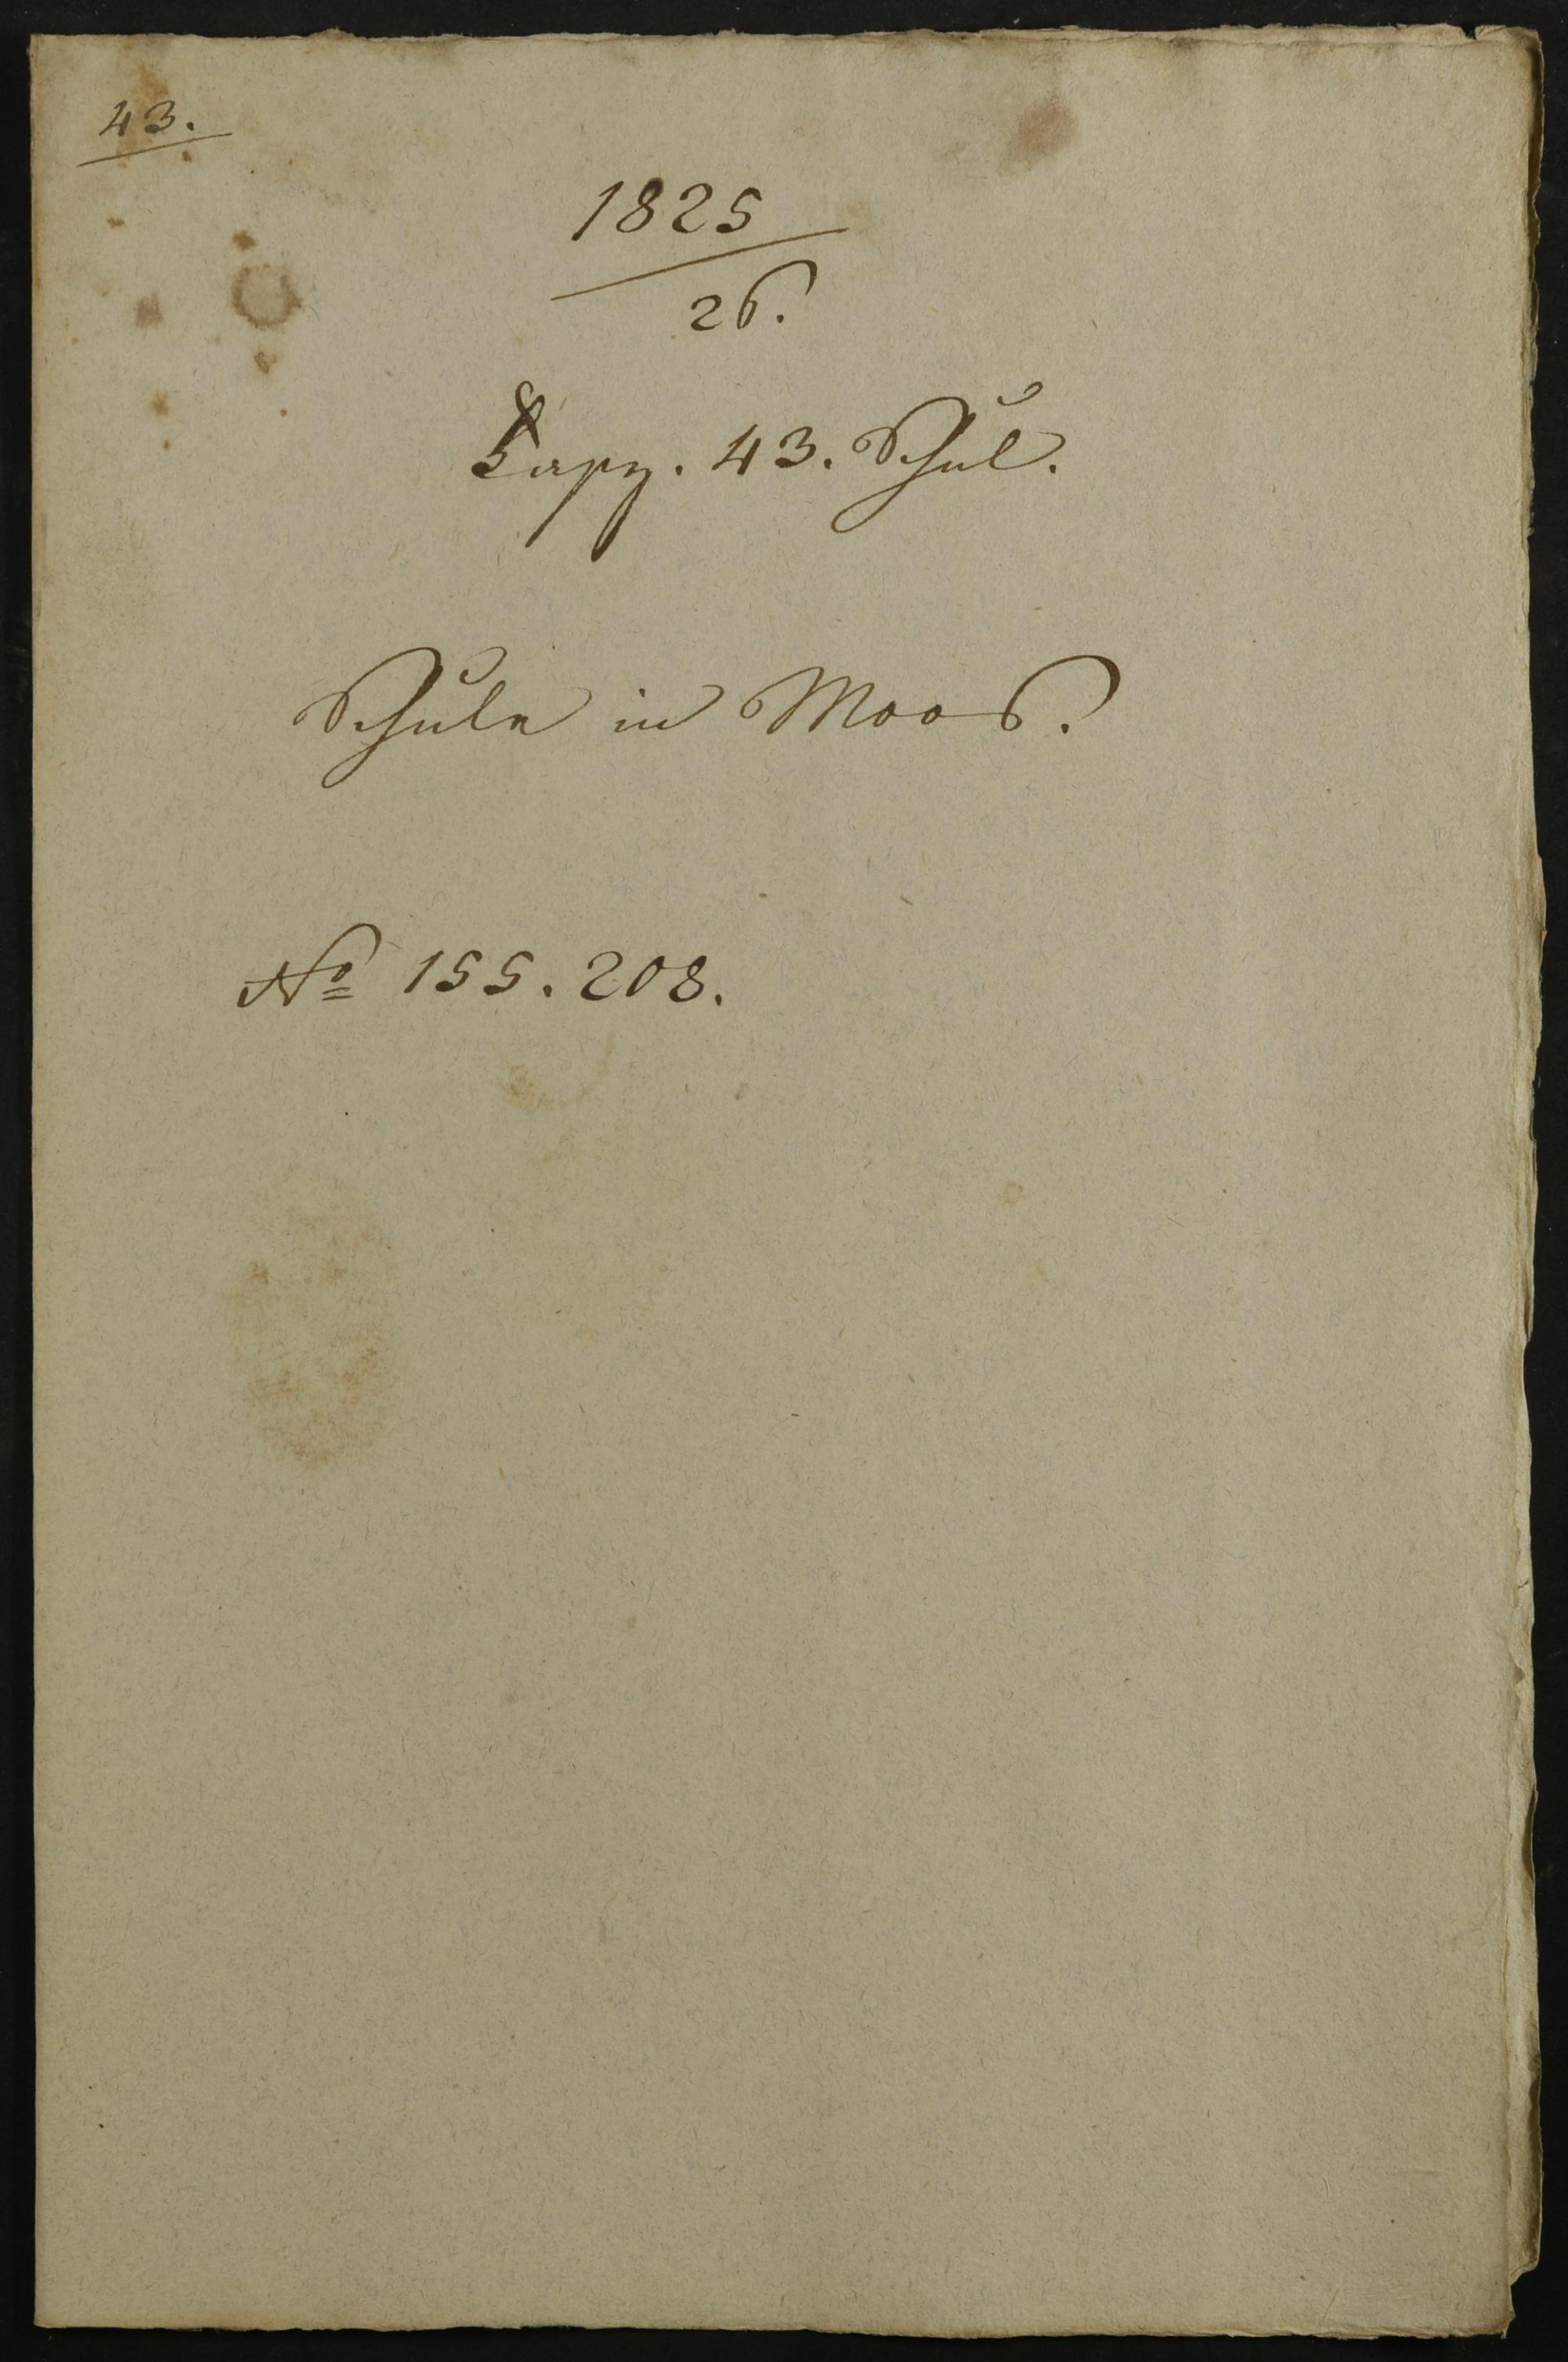 43.
1825
26.
Fasz. 43. Schul.
Schule in Moos.
No 155. 208.